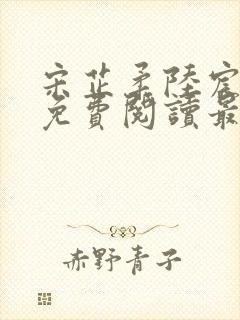 宋芷柔陸宸
免費閱讀最
赤野青子